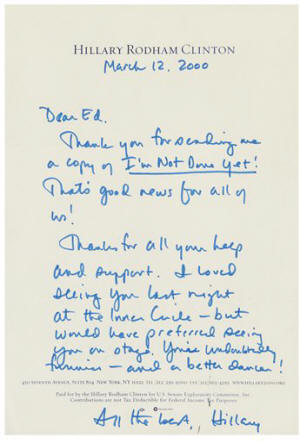 HILLARY RODHAM CLINTON
March 12, 2000
Dear Ed,
Thank you for sending me
a copy of I'm Not Done Yet!
That's good news for all of
us!
Thanks for all your help
and support. I loved
seeing you last night
at the Inner Circle – but
would have preferred seeing
you on stage. You're undoubtedly
funnier – and a better dancer!
450 SEVENTH AVENUE, SUITE 804 NEW YORK, NY
Paid for by the Hillary Rodham Clinton for U.S. Senate Exploratory Committee, Inc
Contributions are not Tax Deductible for Federal Income Tax Purposes
All the best, Hillary